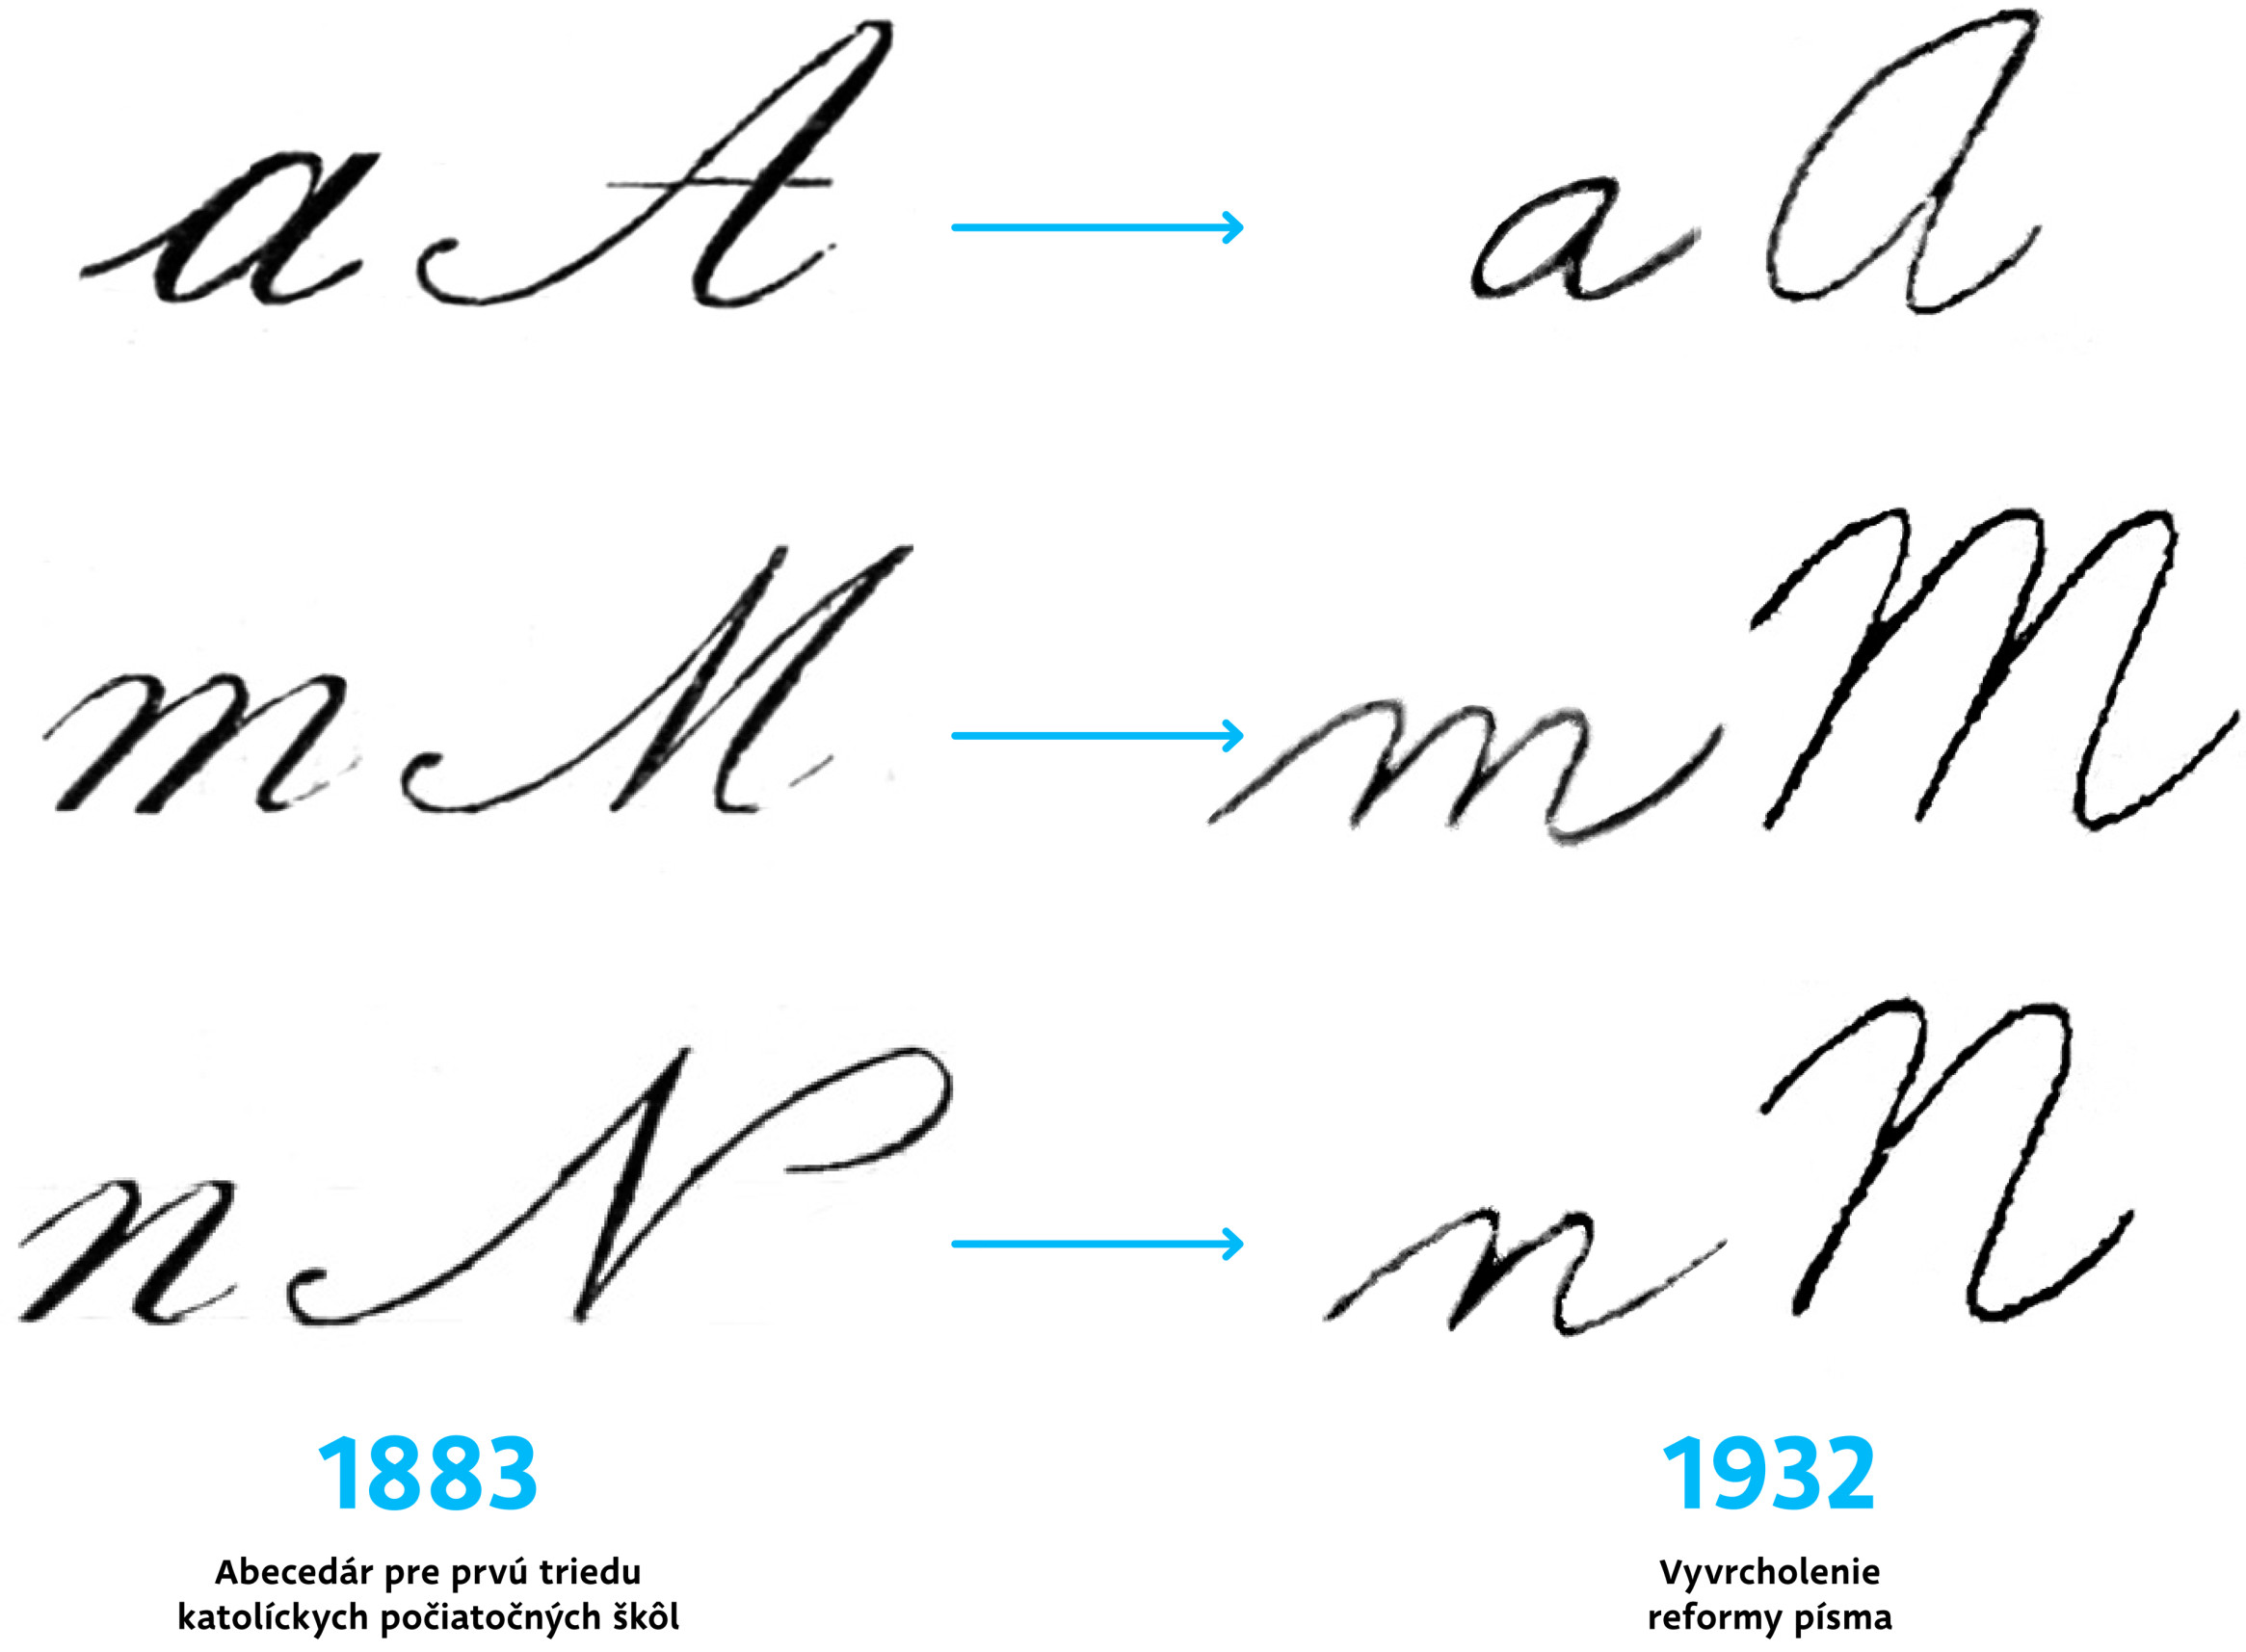 a A a A
m M m M
n N n N
1883 1932
Abecedár pre prvú triedu
katolíckych počiatočných škôl
Vyvrcholenie
reformy písma